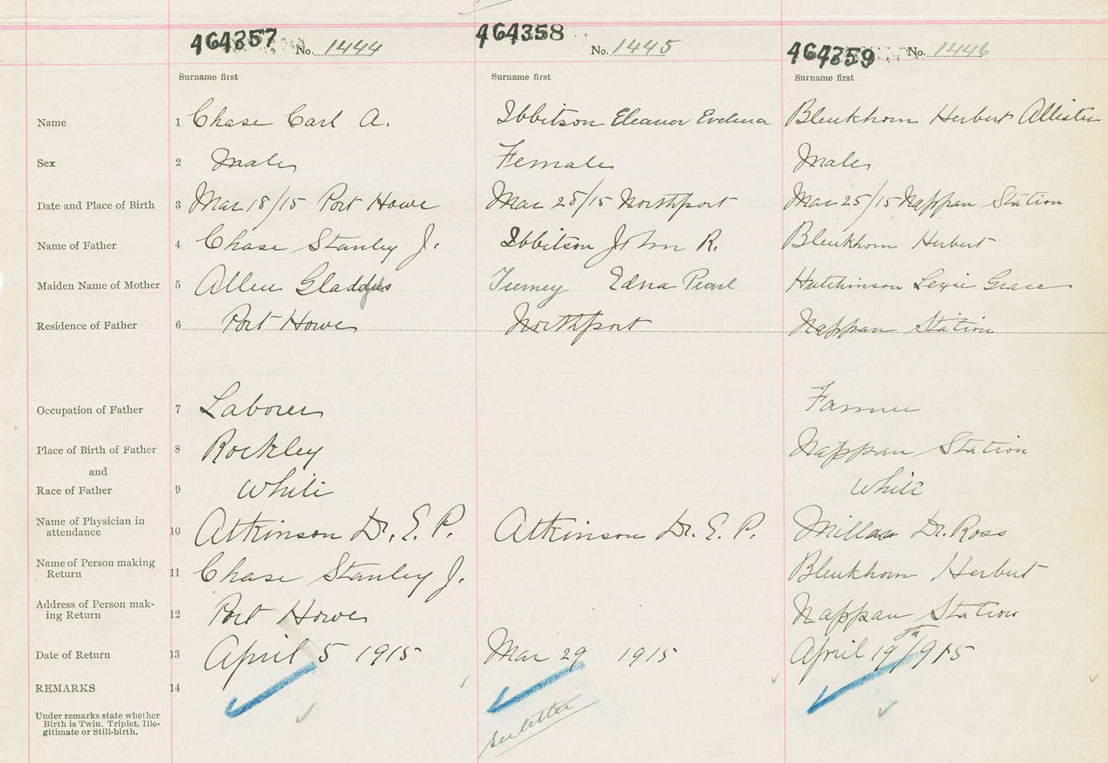 464357 No. 1444 464358 No. 1445 464359 No. 1446
Surname first Surname first Surname first
Name 1 Chase Carl A. Ibbitson Eleanor Evelina Blenkhorn Herbert Allister
Sex 2 Male Female Male
Date and Place of Birth 3 Mar 18/15 Port Howe Mar 25/15 Northport Mar 25/15 Nappan Station
Name of Father 4 Chase Stanley J. Ibbitson John R. Blenkhorn Herbert
Maiden Name of Mother 5 Allen Gladys Tierney Edna Pearl Hutchinson Lexie Grace
Residence of Father 6 Port Howe Northport Nappan Station
Occupation of Father 7 Laborer Farmer
Place of Birth of Father 8 Rockley Nappan Station
and
Race of Father 9 White White
Name of Physician in
attendance 10 Atkinson Dr. E. P. Atkinson Dr. E. P. Dr. Ross
Name of Person making
Return 11 Chase Stanley J. Blenkhorn Herbert
Address of Person mak-
ing Return 12 Port Howe Nappan Station
Date of Return 13 April 5 1915 Mar 29 1915 April 19th 1915
REMARKS 14
see letter
Under remarks state whether
Birth is Twin. Triplet, Ille-
gitimate or Still-birth.